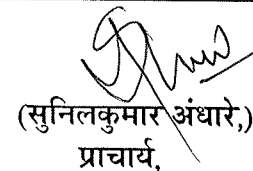 (सुनिलकुमार अंधारे,)
प्राचार्य,